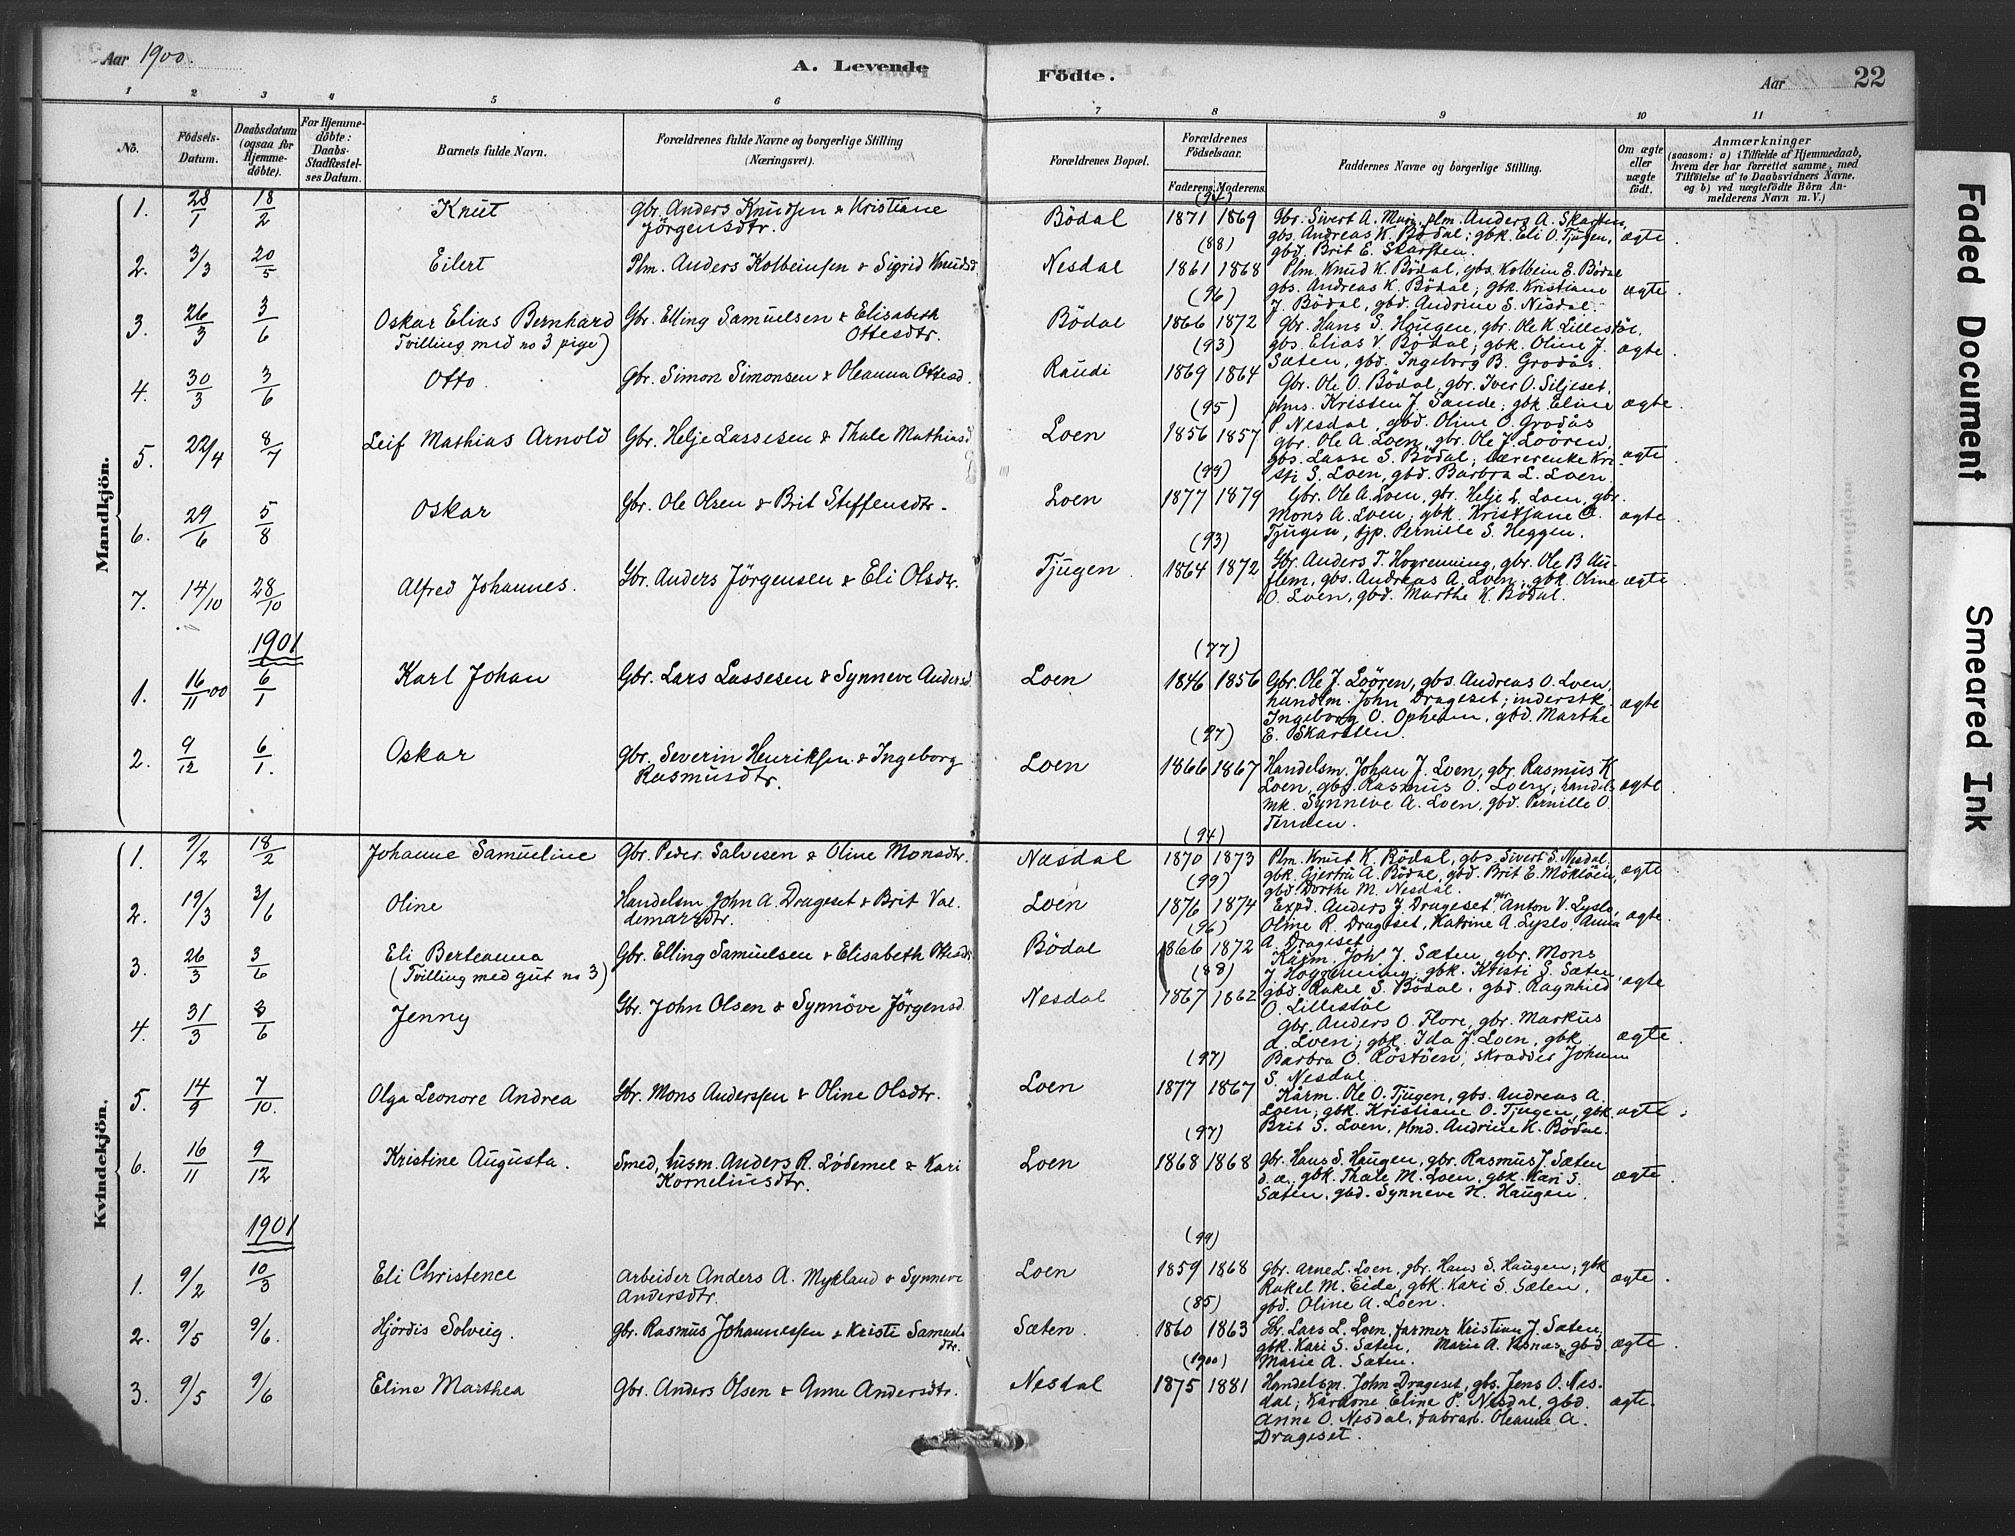 Aar 1900.
A. Levende
Födte.
Aar
22
1 2 3 4 5 6 7 8 9 10 11
No.
Födsels-
Datum.
Daabsdatum
(ogsaa for
Hjemme-
döbte).
For Hjemme-
döbte:
Daabs-
Stadfæstel-
ses Datum.
Barnets fulde Navn.
Forældrenes fulde Navne og borgerlige Stilling
(Næringsvei).
Forældrenes Bopæl.
Forældrenes
Födselsaar.
Faderens. Moderens.
Faddernes Navne og borgerlige Stilling.
Om ægte
eller
uægte
födt.
Anmærkninger
(saasom: a) i Tilfælde af Hjemmedaab,
hvem der har forrettet samme, med
Tilföielse af to Daabsvidners Navne.
og b) ved uægtefödte Börn An-
melderens Navn m. V.)
Mandkjön.
1. 28/1 18/2 Knut Gbr. Anders Knudsen & Kristiane
Jörgensdtr.
Bödal (94) 1871 1869 Gbr. Sivert A. Muri, plm. Anders A. Skarsten,
gbs. Andreas K. Bödal; gbk. Eli O. Tjugen,
gbd. Brit E. Skarsten.
ægte.
2. 3/3 20/5 Eilert Plm. Anders Kolbeinsen & Sigrid Knudsd.
Nesdal (88) 1861 1868 Plm. Knud K. Bödal, gbs. Kolbein E. Bödal
gbs. Andreas K. Bödal; gbk. Kristiane
J. Bödal, gbd. Andrine S. Nesdal.
ægte.
3. 26/3 3/6 Oskar Elias Bernhard
Tvilling med no 3 pige)
Gbr. Elling Samuelsen & Elisabeth
Ottesdtr.
Bödal (96) 1866 1872 Gbr. Hans S. Haugen, gbr. Ole K. Lillestöl,
gbs. Elias V. Bödal; gbk. Oline J.
Sæten, gbd. Ingeborg B. Grodås.
ægte.
4. 30/3 3/6 Otto. Gbr. Simon Simonsen & Oleanna Ottesd.
Raudi (93) 1869 1864 Gbr. Ole O. Bödal, gbr. Iver O. Siljeset,
plms. Kristen J. Sande; gbk. Eline
P. Nesdal, gbd. Oline O. Grodås
ægte.
5. 22/4 8/7 Leif Mathias Arnold Gbr. Helje Lassesen & Thale Mathiasd
Loen (95) 1856 1857 gbr. Ole A. Loen, gbr. Ole J. Looren,
gbs. Lasse S. Bödal; lærerenke Kri-
sti S. Loen, gbd. Barbra L. Loen
ægte.
6. 29/6 5/8 Oskar Gbr. Ole Olsen & Brit Steffensdtr.
Loen (99) 1877 1879 Gbr. Ole A. Loen, gbr. Helje L. Loen, gbr.
Mons A. Loen; gbk. Kristjane O.
Tjugen, tjp. Pernille S. Heggen.
ægte.
7. 14/10 28/10 Alfred Johannes. Gbr. Anders Jörgensen & Eli Olsdtr.
Tjugen (93) 1864 1872 Gbr. Anders T. Hogrenning, gbr. Ole B. Au-
flem, gbs. Andreas A. Loen; gbk. Oline
O. Loen, gbd. Marthe K. Bödal.
ægte.
1901
1. 16/11 00 6/1 Karl Johan Gbr. Lars Lassesen & Synneve Andersd.
Loen (77) 1846 1856 Gbr. Ole J. Looren, gbs. Andreas O. Loen,
handlm. John Drageset; inderstk.
Ingeborg O. Opheim, gbd. Marthe
E. Skarsten.
ægte
2. 9/12 6/1. Oskar Gbr. Severin Henriksen & Ingeborg
Rasmusdtr.
Loen (97) 1866 1867 Handelsm. Johan J. Loen, gbr. Rasmus K
Loen, gbs. Rasmus O. Loen; handels-
mk. Synneve A. Loen, gbd. Pernille O.
Tenden.
ægte.
Kvindekjön.
1. 9/2 18/2 Johanne Samueline Gbr. Peder Salvesen & Oline Monsdtr.
Næsdal (94) 1870 1873 Plm. Knut K. Bödal, gbs. Sivert S. Nesdal;
gbk. Gjertrü A. Bödal, gbd. Brit E. Möklöen,
gbd. Dorthe M. Nesdal.
ægte.
2. 19/3 3/6 Oline Handelsm. John A. Drageset & Brit Val-
demarsdtr.
Loen (99) 1876 1874 Exod. Anders J. Drageset, gbr. Anton V. Lyslo,
Oline R. Drageset, Katrine A. Lyslo, Anna
A. Drageset
ægte.
3. 26/3 3/6 Eli Berteanna
(Tvilling med gut no 3)
Gbr. Elling Samuelsen & Elisabeth Ottesdr
Bödal (96) 1866 1872 Kårm. Joh. J. Sæten, gbr. Mons
J. Hogrenning; gbk. Kristi S. Sæten
gbd. Rakel S. Bödal, gbd. Ragnhild
O. Lillestöl
ægte
4. 31/3 3/6 Jenny Gbr. John Olsen & Synnöve Jörgensd.
Nesdal (88) 1867 1862 Gbr. Anders O. Flore, gbr. Markus
A. Loen; gbk. Ida J. Loen, gbk
Barbra O. Röstöen; skrædder Johann
S. Nesdal
ægte.
5. 14/9 7/10. Olga Leonore Andrea Gbr. Mons Anderssen & Oline Olsdtr.
Loen (97) 1877 1867 Kårm. Ole O. Tjugen, gbs. Andreas A.
Loen; gbk. Kristiane O. Tjugen, gbk.
Brit S. Loen, plmd. Andrine K. Bödal.
ægte.
6. 16/11 9/12 Kristine Augusta. Smed, husm. Anders R. Lödemel & Kari
Korneliusdtr.
Loen (97) 1868 1868 gbr. Hans S. Haugen, gbr. Rasmus J. Sæten
d. æ. gbk. Thale M. Loen, gbk. Kari S.
Sæten, gbd. Synneve H. Haugen.
ægte.
1901
1. 9/2 10/3 Eli Christence Arbeider Anders A. Mykland & Synneve
Andersdtr.
Loen (99) 1859 1868 gbr. Arne L. Loen, gbr. Hans S. Haugen; gbk
Rakel M. Eide, gbk. Kari S. Sæten,
gbd. Oline A. Loen.
ægte.
2. 9/5 9/6. Hjördis Solveig. Gbr. Rasmus Johannessen & Kristi Samuels
dtr.
Sæten. (85) 1860 1863 Gbr. Lars L. Loen, farmer Kristian J. Sæten,
gbk. Kari S. Sæten, Marie A. Vasnæs, gbd
Marie A. Sæten.
ægte.
3. 9/5 9/6 Eline Marthea Gbr. Anders Olsen & Anne Andersdtr.
Nesdal (1900) 1875 1881 Handelsm. John Drageset, gbs. Jens O. Nes-
dal; Kårkone Eline P. Nesdal, gbd.
Anne O. Nesdal, fabrarb. Oleanna A.
Drageset.
ægte.
Faded Document
Smeared Ink